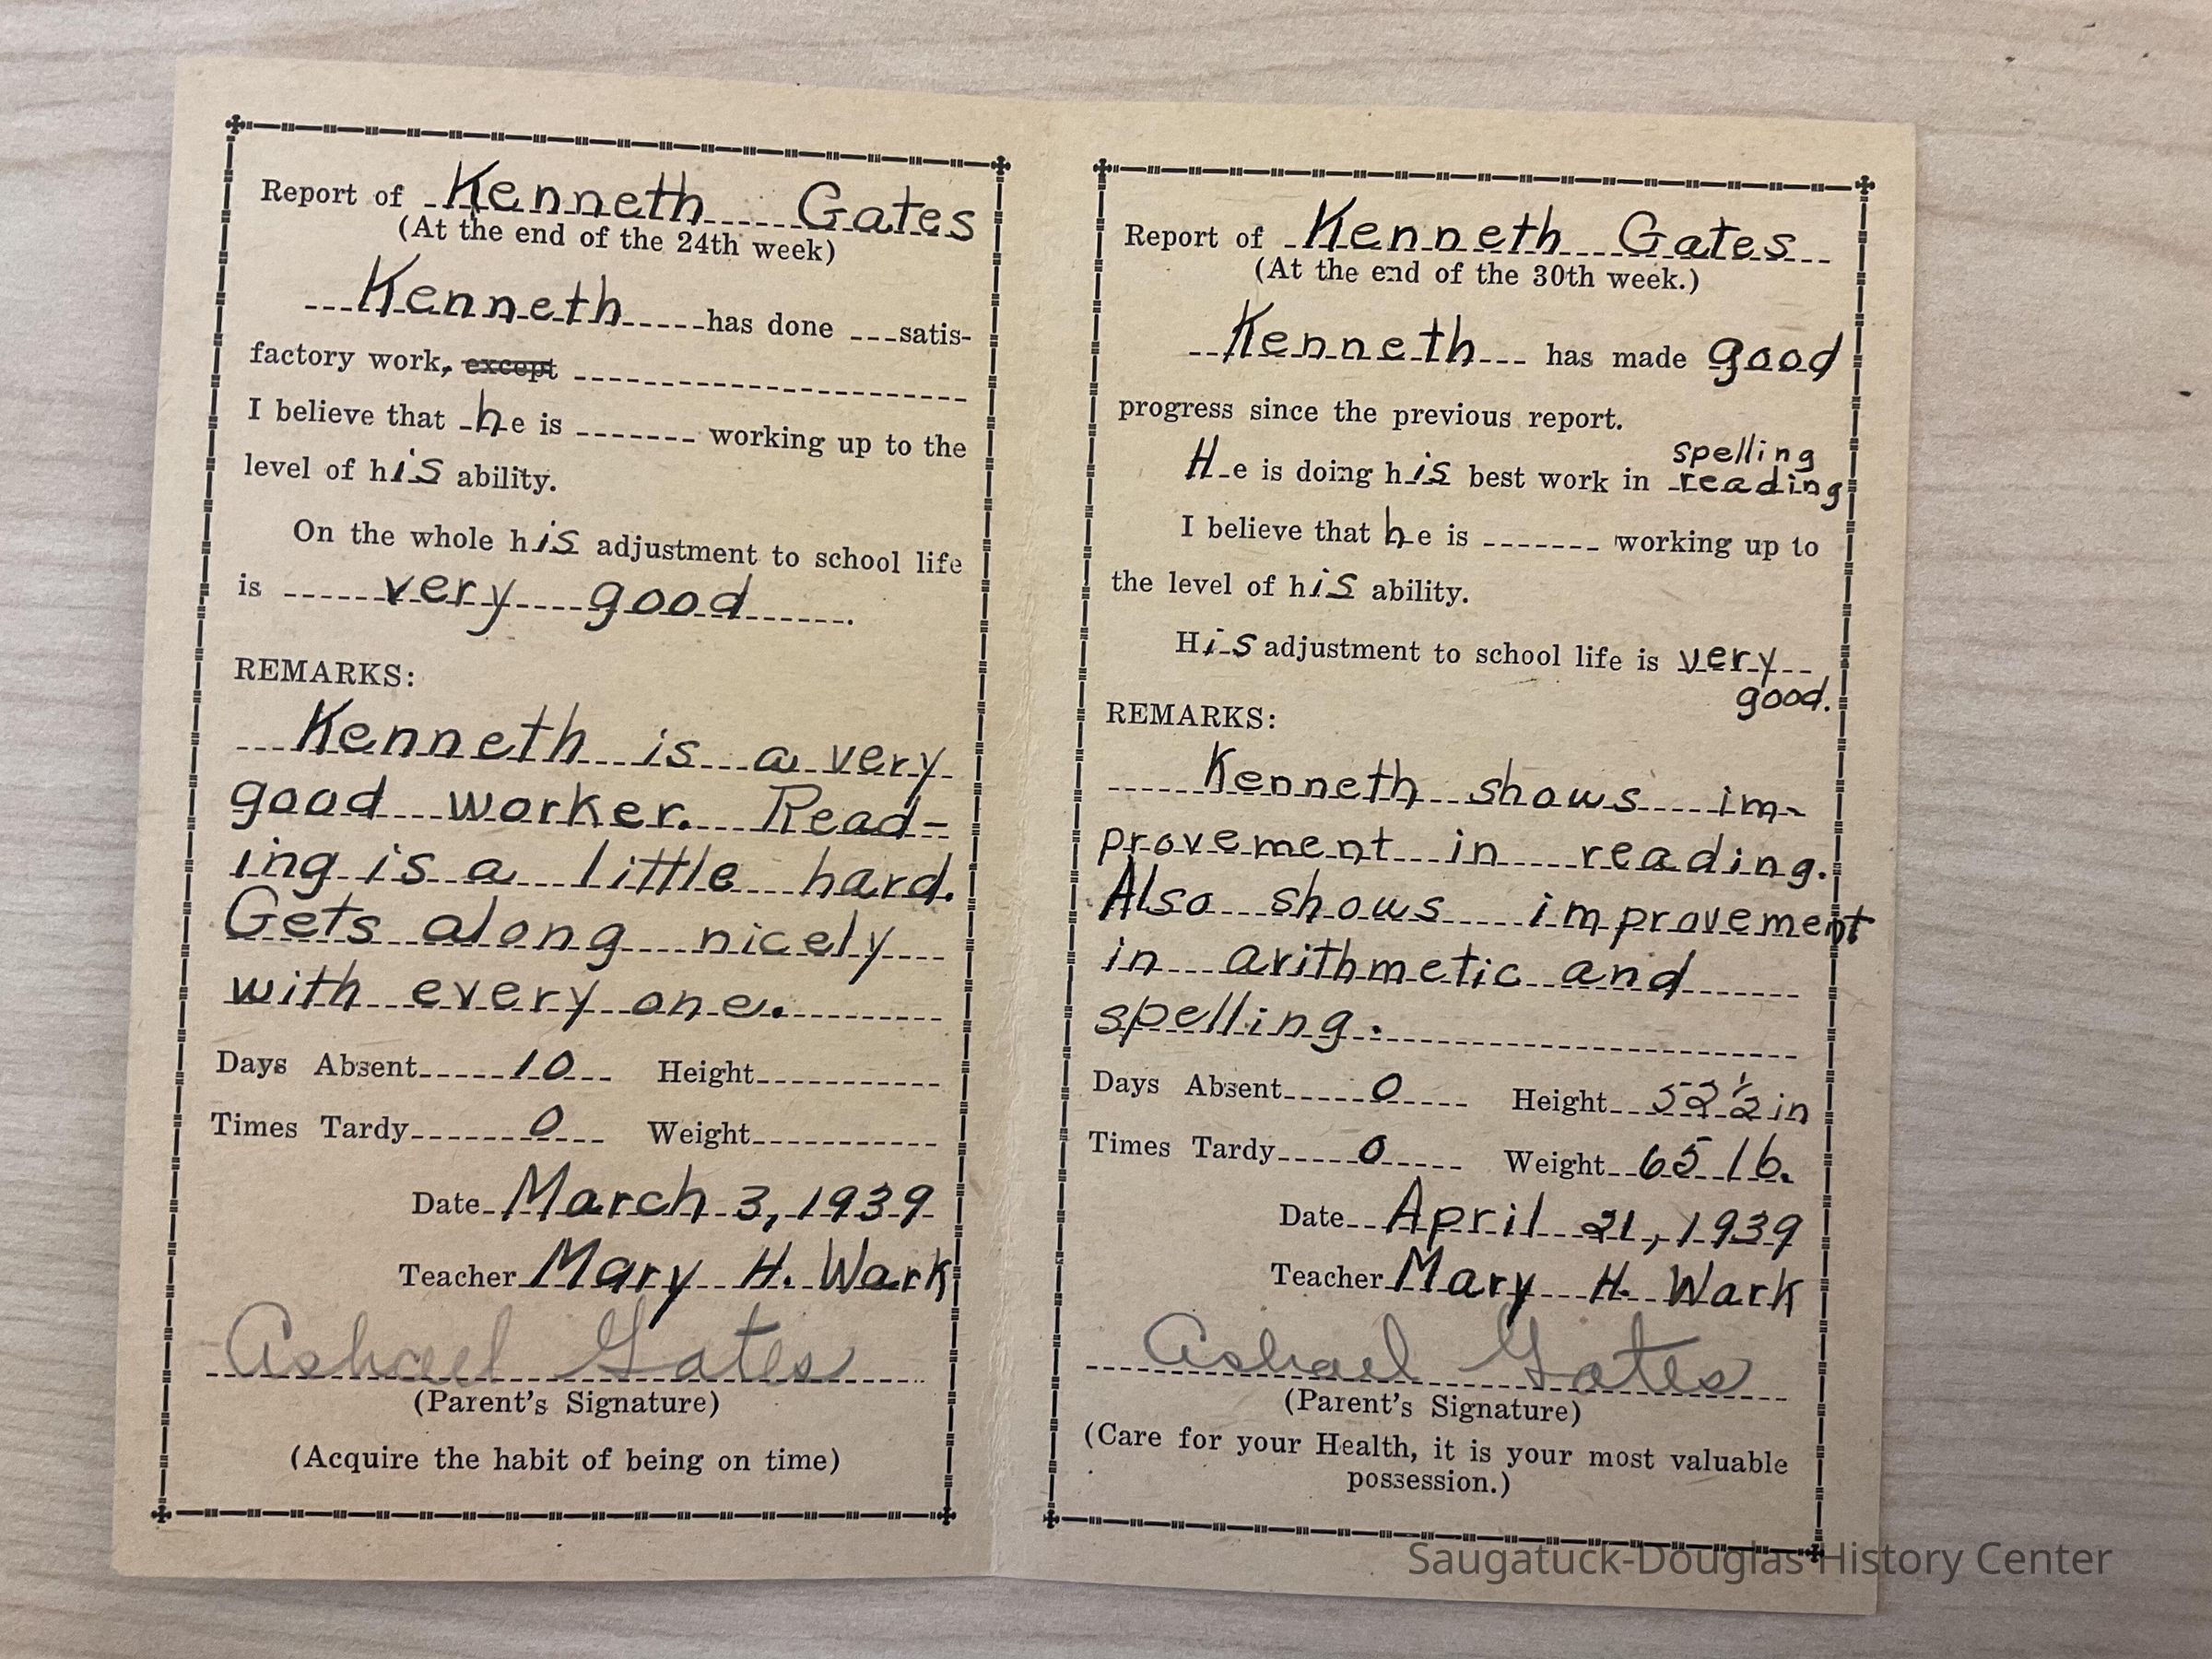 Report of Kenneth Gates
(At the end of the 24th week)
Kenneth has done satis-
factory work, except
I believe that he is working up to the
level of his ability.
On the whole his adjustment to school life
is very good.
REMARKS:
Kenneth is a very
good worker. Read-
ing is a little hard.
Gets along nicely
with every one.
Days Absent 10 Height
Times Tardy 0 Weight
Date March 3, 1939
Teacher Mary H. Wark
Ashael Gates
(Parent's Signature)
(Acquire the habit of being on time)
Report of Kenneth Gates
(At the end of the 30th week.)
Kenneth has made good
progress since the previous report.
spelling
He is doing his best work in reading
I believe that he is working up to
the level of his ability.
His adjustment to school life is very
good.
REMARKS:
Kenneth shows im-
provement in reading.
Also shows improvement
in arithmetic and
spelling.
Days Absent 0 Height 52 1/2 in
Times Tardy 0 Weight 65 lb.
Date April 21, 1939
Teacher Mary H. Wark
Ashael Gates
(Parent's Signature)
(Care for your Health, it is your most valuable
possession.)
Saugatuck-Douglas History Center